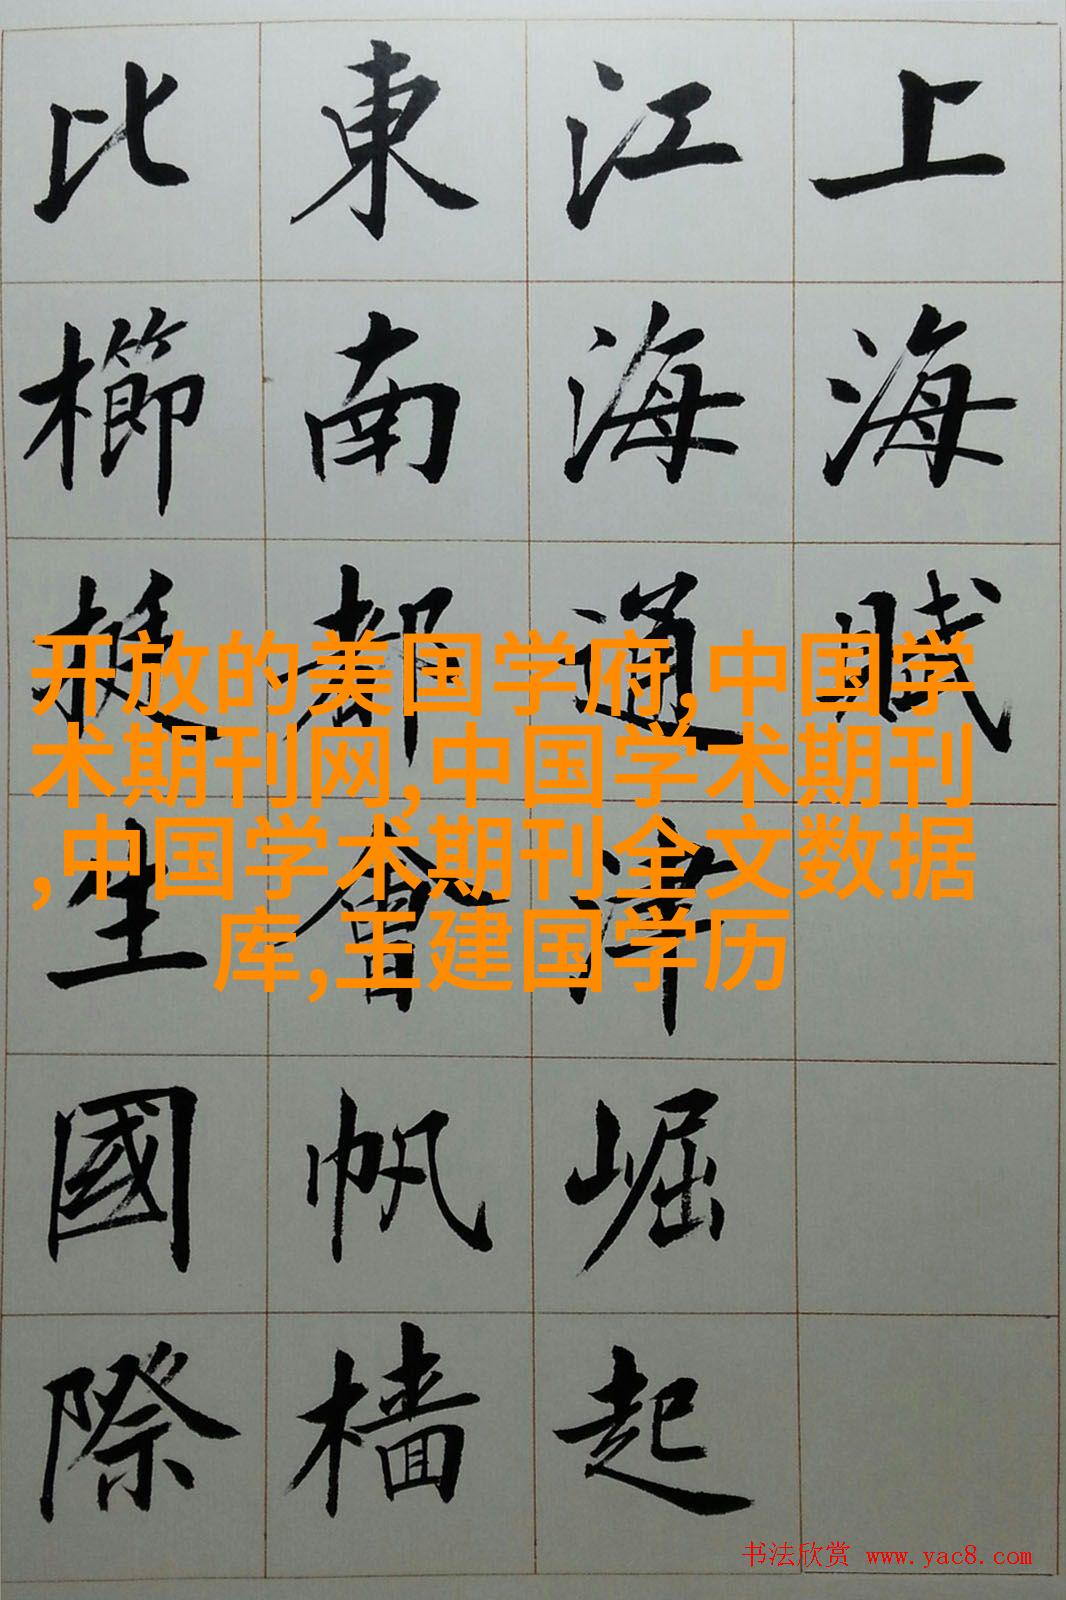 上海賦
江海通津崛起
東南都會帆檣
比櫛挺生國際
开放的美国学府,中国学
术期刊网,中国学术期刊
,中国学术期刊全文数据
库,王建国学历
书法欣赏 www.yac8.com